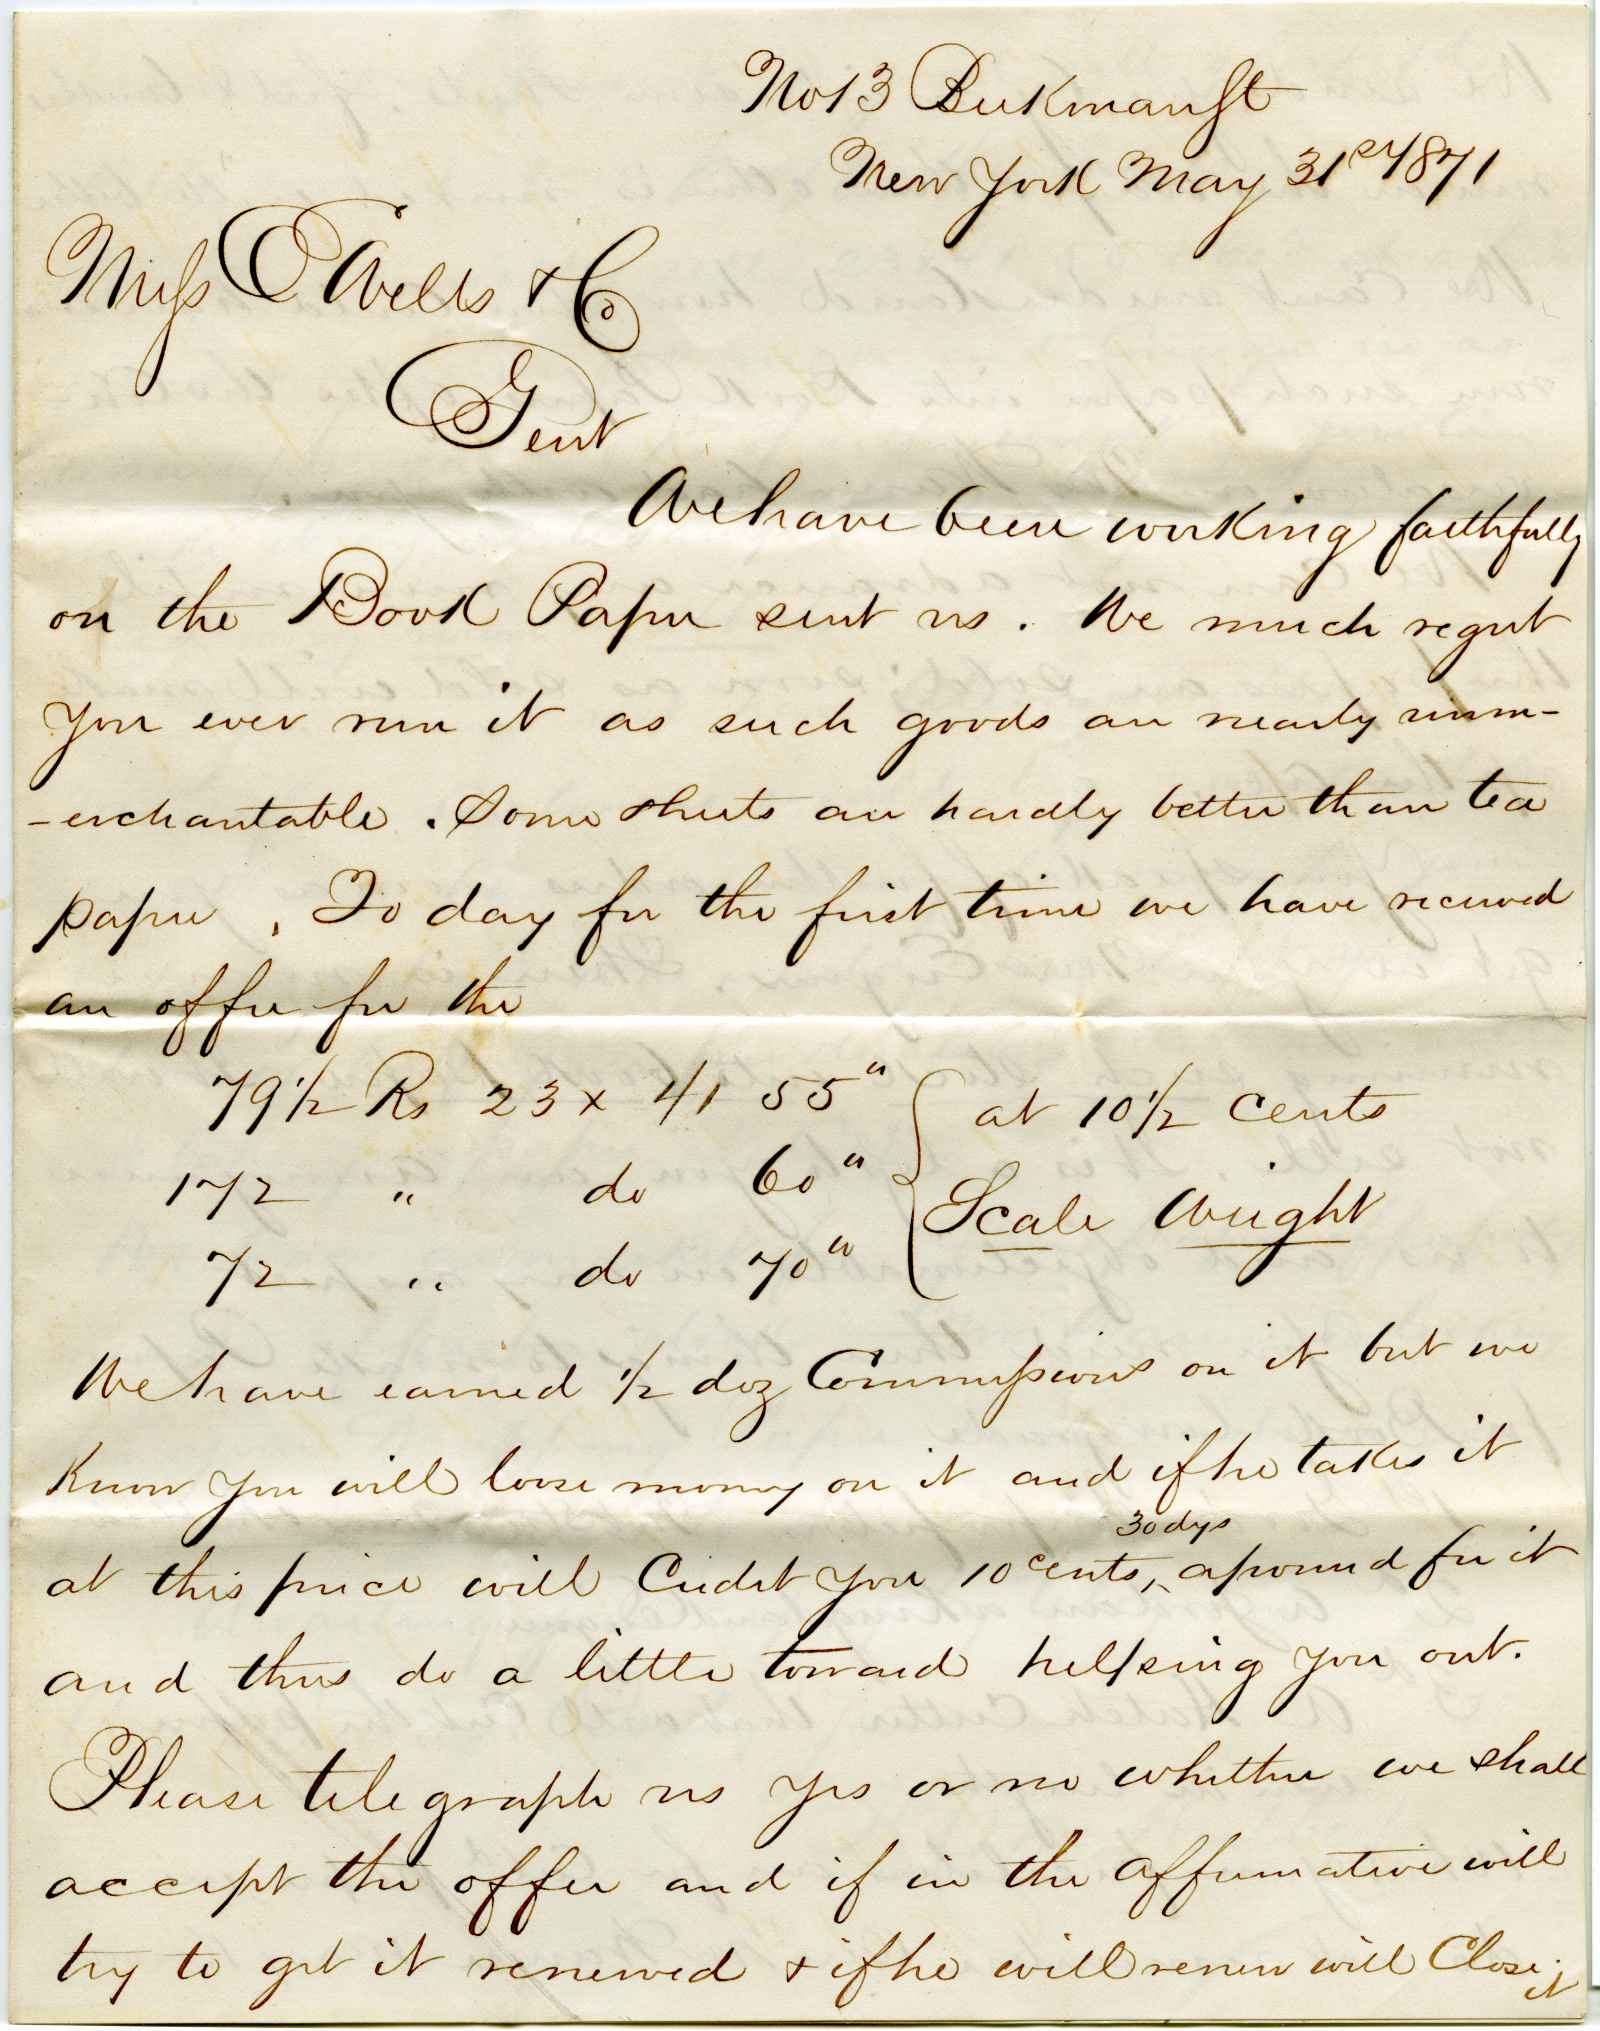 No 13 Beekman St
New York May 31st 1871
Mess C Wells & Co
Gent
We have been working faithfully
on the Book Paper sent us. We much regret
you ever run it as such goods are nearly unm-
-erchantable. Some sheets are hardly better than tea
paper, To day for the first time we have received
an offer for the
79 1/2 Rs 23 x 41 55" at 10 1/2 cents
172 " do 60" Scale Weight
72 " do 70"
We have earned 1/2 doz Commissions on it but we
know you will loose money on it and if he takes it
30 dys
at this price will Credit you 10 cents, a pound for it
and thus do a little toward helping you out.
Please telegraph us yes or no whether we shall
accept the offer and if in the affirmative will
try to get it renewed & if he will renew will Close
it